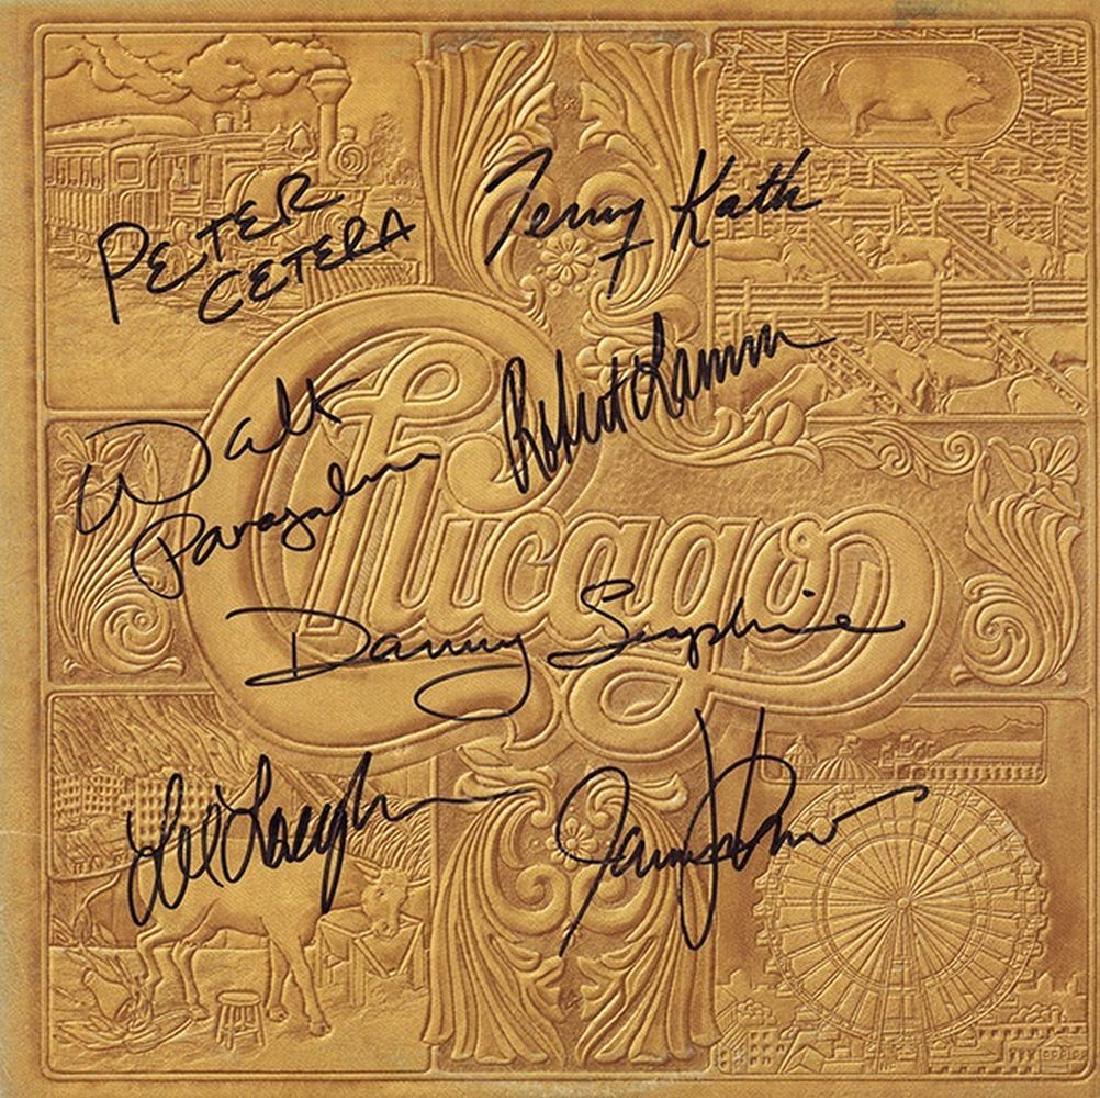 PETER
CETERA
Terry Kath
Robert Lamm
Walt
Parazaider
Chicago
Danny Seraphine
Lee Loughnane
James Pankow